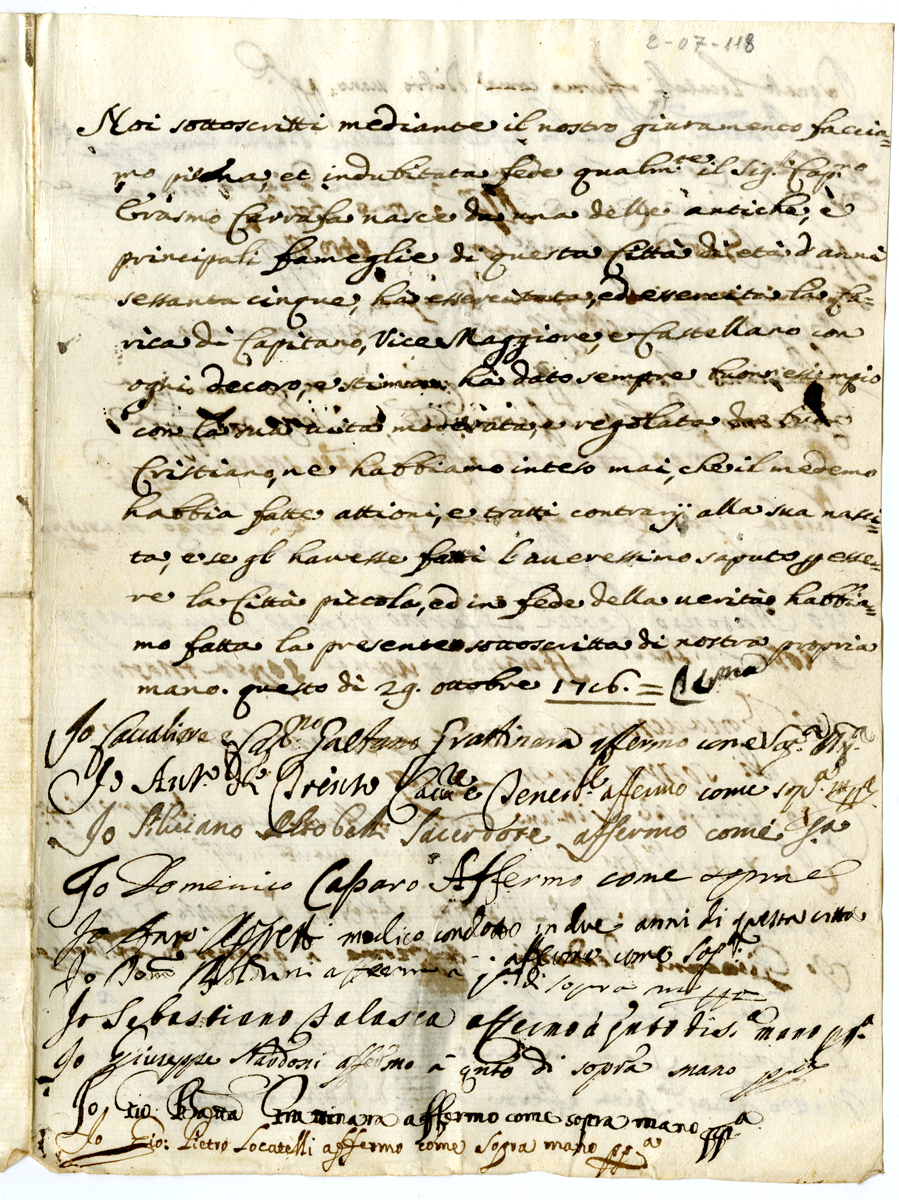 2-07-118
Noi sottoscritti mediante il nostro giuramento faccia=
mo piena, et indubitata fede qualmte il Sigr Capno
Erasmo Carrafa nasce da una delle antiche, è
principali fameglie di questa Città di età d'anni
sessanta cinque, hà essercitata, ed essercita la ca=
rica di Capitano, Vice Maggiore, e Castellano con
ogni decoro, e stima hà dato sempre buon essempio
con la sua vita moderata, e regolata da buon
Cristiano, ne habbiamo inteso mai, che il medemo
habbia fatte attioni, e tratti contrarij alla sua nasci=
ta, e se gl havesse fatti l'averessimo saputo p esse=
re la Città piccola, ed in fede della verità habbia=
mo fatta la presente sottoscritta di nostra propria
mano. questo di 29. ottobre 1716. =
Io Cavaliere e Capno Gaetano Grattinara affermo come sopa
Io Antº affermo come sopa
Io Feliciano Altobelli Sacerdote affermo come sa
Io Domenico Caparo Affermo come sopra
Io medico condotto in due anni di questa citta
affermo come sopa
Io affermo à di sopra
Io Sebastiano Salasca affermo à qnto di sa mano ppa
Io Giuseppe Nardoni affermo à qnto di sopra mano ppa
Io Gio: Batta Grattinara affermo come sopra mano pppa
Io Gio: Pietro Locatelli affermo come sopra mano ppa